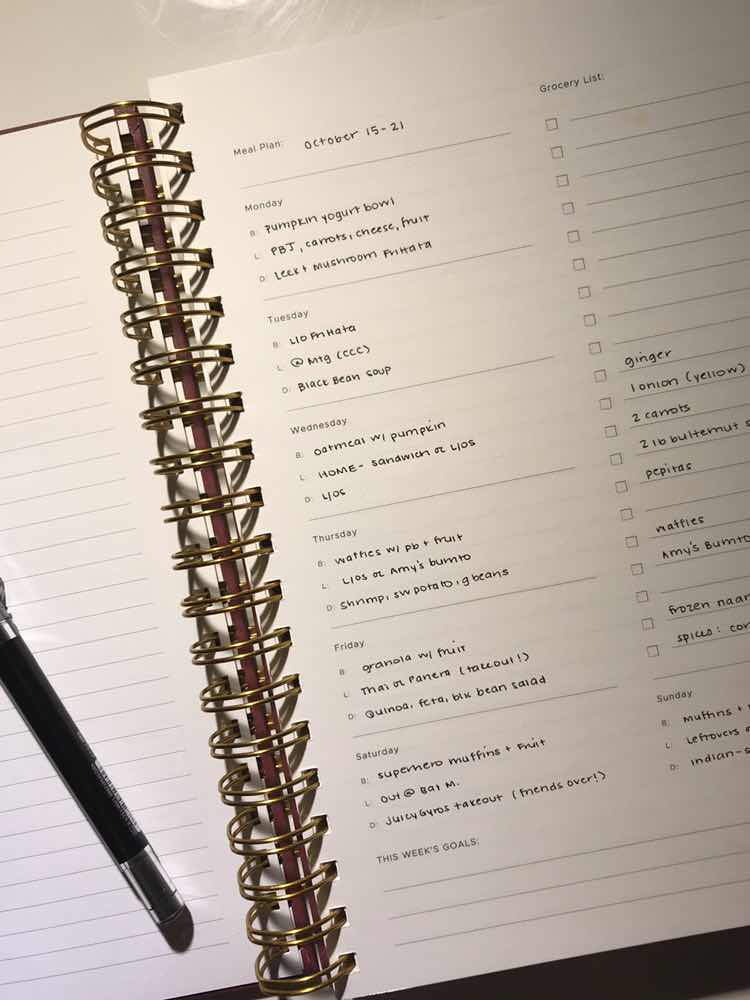 Meal Plan: October 15-21
Monday
B: Pumpkin yogurt bowl
L: PBJ, carrots, cheese, fruit
D: Leek + Mushroom Frittata
Tuesday
B: L/O Frittata
L: @ Mtg (CCC)
D: Black Bean soup
Wednesday
B: oatmeal w/ pumpkin
L: HOME - sandwich or L/Os
D: L/Os
Thursday
B: waffles w/ pb + fruit
L: L/Os or Amy's burrito
D: shrimp, sw potato, g beans
Friday
B: granola w/ fruit
L: Thai or Panera (takeout!)
D: Quinoa, feta, blk bean salad
Saturday
B: superhero muffins + fruit
L: out @ Bat M.
D: Juicy Gyros takeout (friends over!)
THIS WEEK'S GOALS:
Grocery List:
ginger
1 onion (yellow)
2 carrots
2 lb butternut
pepitas
waffles
Amy's Burrito
frozen naan
spices:
Sunday
B: muffins +
L: Leftovers
D: Indian-